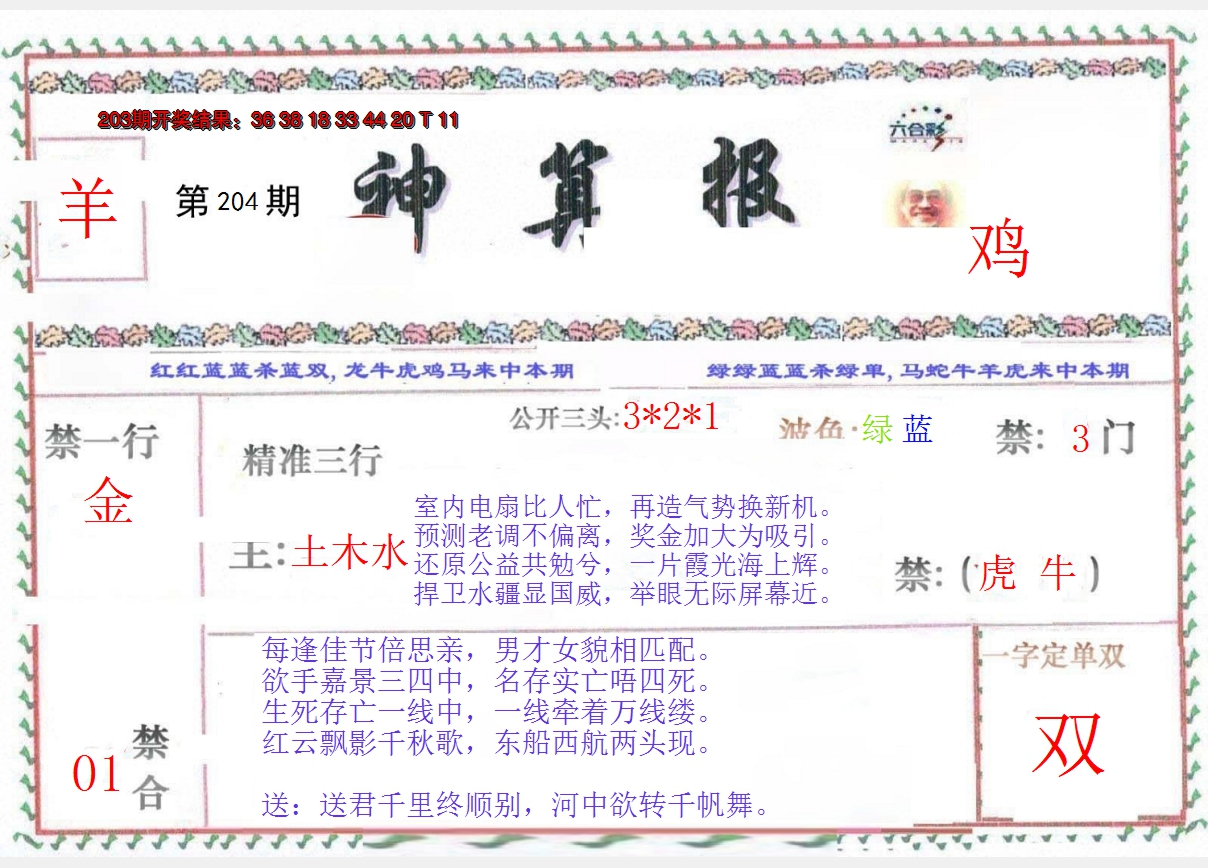 203期开奖结果：36 38 18 33 44 20 T 11
六合彩
羊
第 204 期
神算报
鸡
红红蓝蓝杀蓝双, 龙牛虎鸡马来中本期
绿绿蓝蓝杀绿单, 马蛇牛羊虎来中本期
禁一行
金
精准三行
公开三头:3*2*1
波色·绿 蓝
禁: 3 门
主:土木水
室内电扇比人忙，再造气势换新机。
预测老调不偏离，奖金加大为吸引。
还原公益共勉兮，一片霞光海上辉。
捍卫水疆显国威，举眼无际屏幕近。
禁: (虎 牛)
每逢佳节倍思亲，男才女貌相匹配。
欲手嘉景三四中，名存实亡唔四死。
生死存亡一线中，一线牵着万线缕。
红云飘影千秋歌，东船西航两头现。
送：送君千里终顺别，河中欲转千帆舞。
01
禁合
一字定单双
双